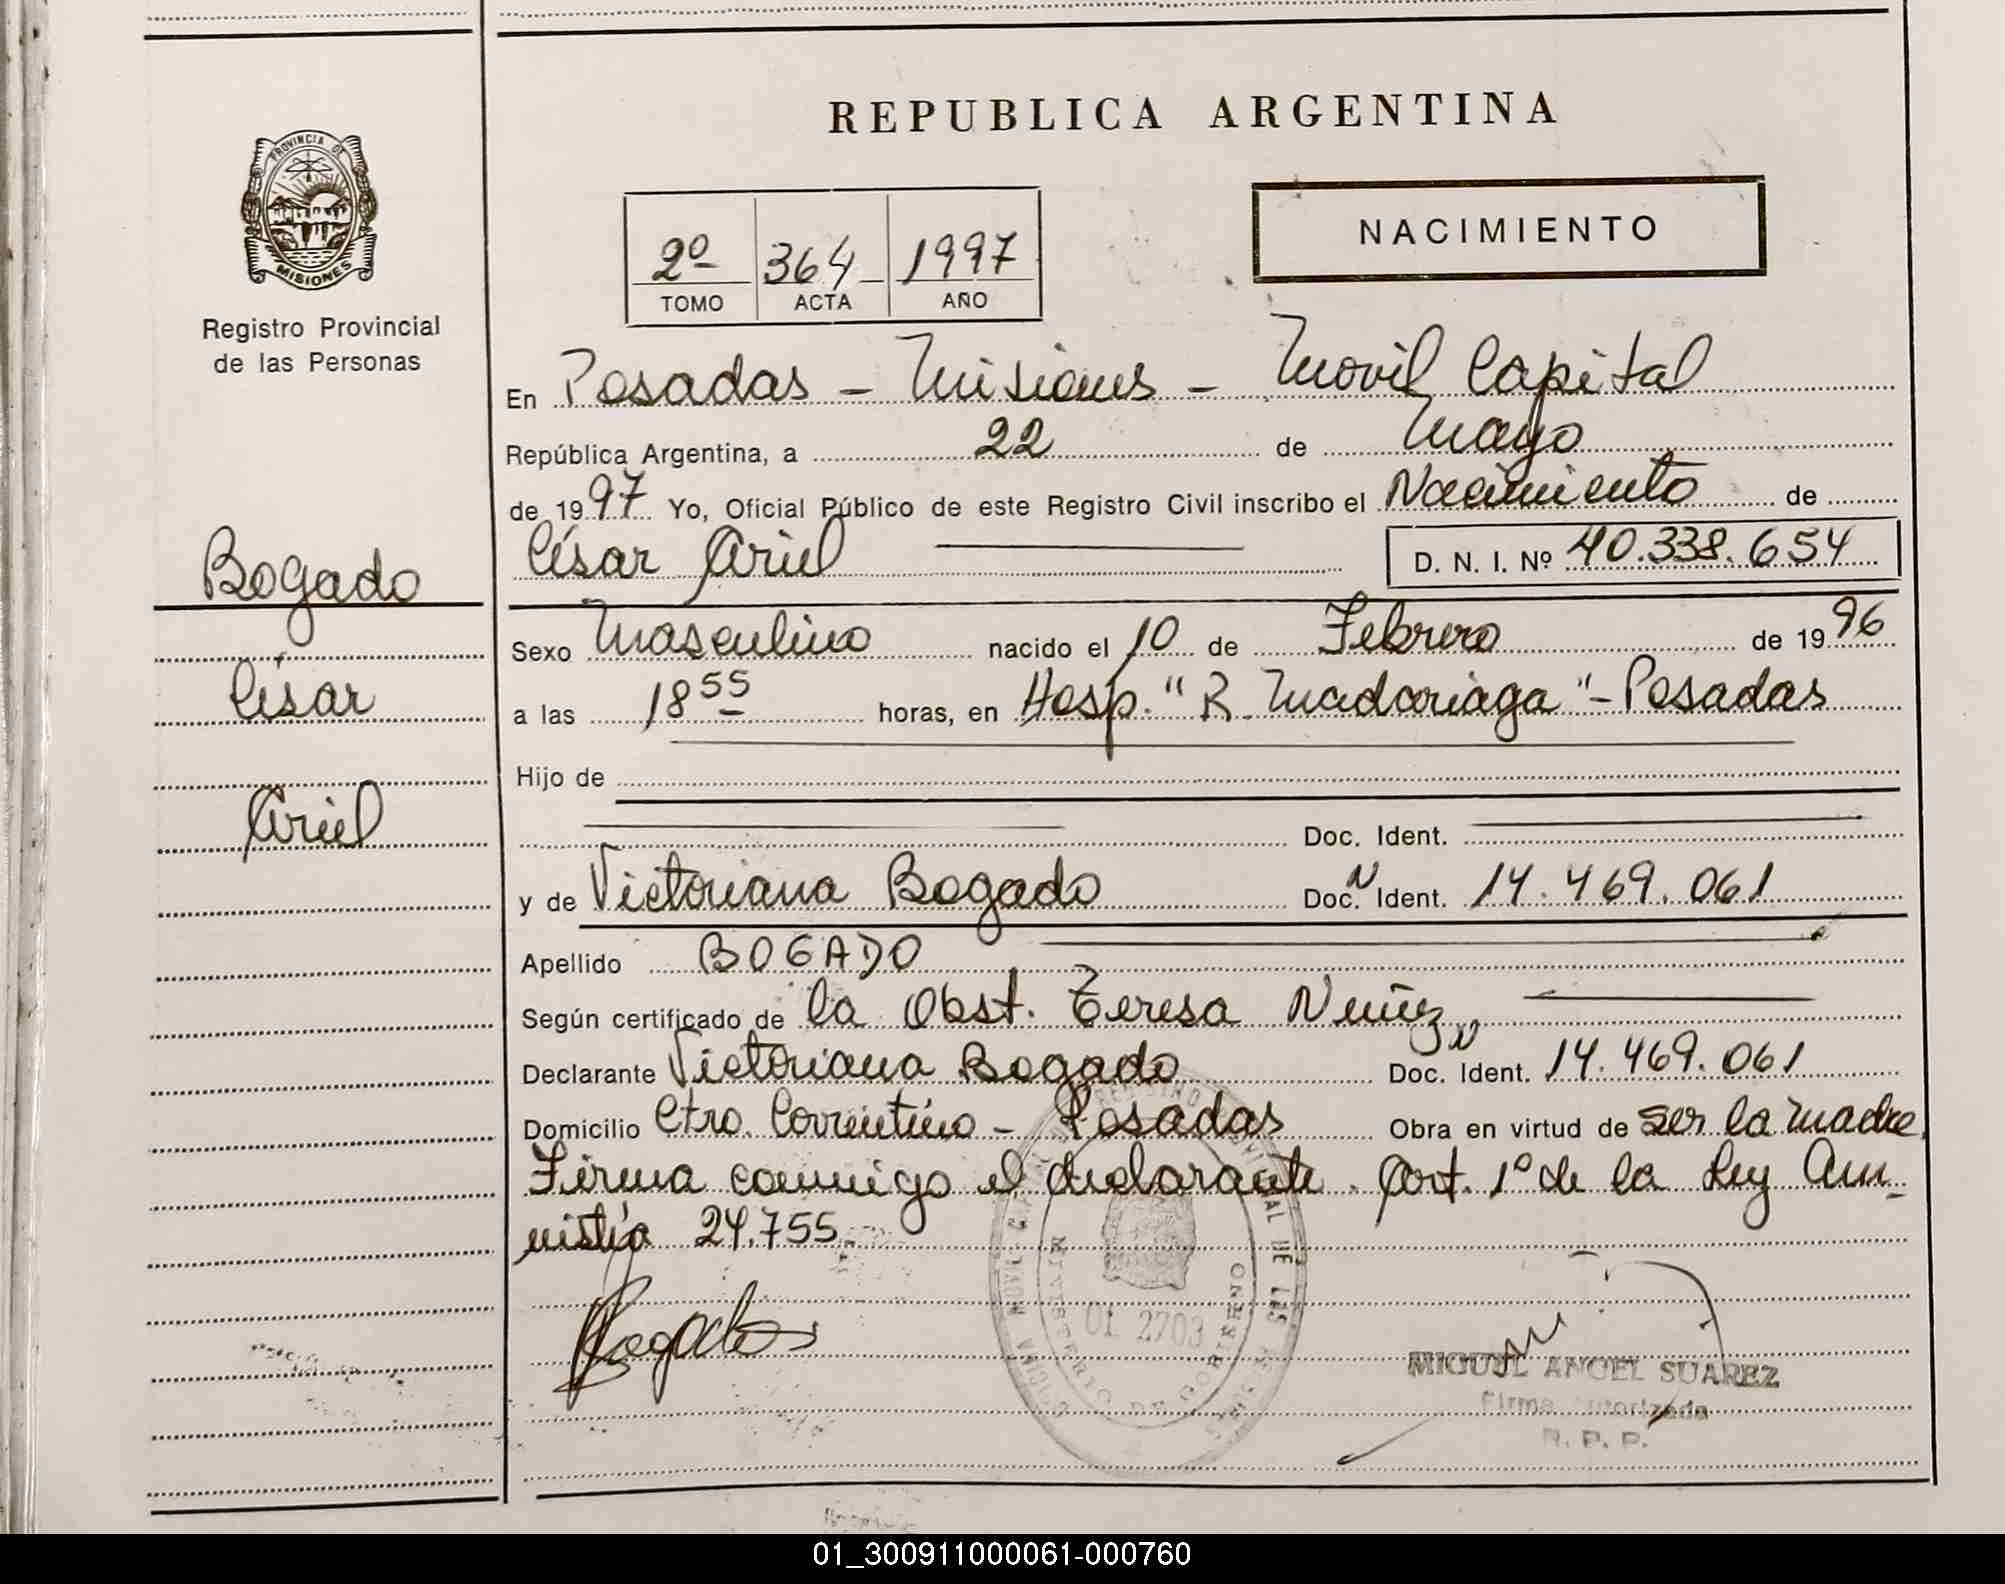 REPUBLICA ARGENTINA
PROVINCIA DE
MISIONES
Registro Provincial
de las Personas
NACIMIENTO
2º 364 1997
TOMO ACTA AÑO
En Posadas - Misiones - Movil Capital
República Argentina, a 22 de Mayo
de 1997 Yo, Oficial Público de este Registro Civil inscribo el Nacimiento de
César Ariel D. N. I. Nº 40.338.654
Bogado
César
Ariel
Sexo Masculino nacido el 10 de Febrero de 1996
a las 18 55 horas, en Hosp. "R. Madariaga" - Posadas
Hijo de
Doc. Ident.
y de Victoriana Bogado Doc. N Ident. 14.469.061
Apellido BOGADO
Según certificado de la Obst. Teresa Nuñez
Declarante Victoriana Bogado Doc. N Ident. 14.469.061
Domicilio Ctro. Correntino - Posadas Obra en virtud de ser la madre.
Firma conmigo el declarante. Art. 1º de la Ley Am-
nistía 24.755.
Bogado
01 2703
MINISTERIO DE GOBIERNO
MIGUEL ANGEL SUAREZ
Firma Autorizada
R. P. P.
01_300911000061-000760